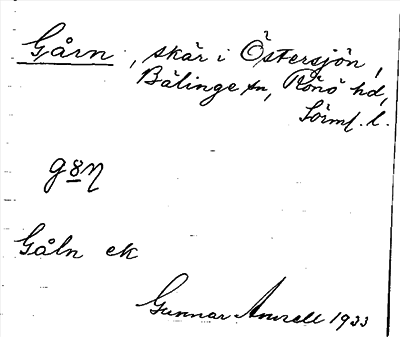 Gårn, skär i Östersjön,
Bälinge sn, Rönö hd,
Sörml. l.
Gåln ek
Gunnar 1933